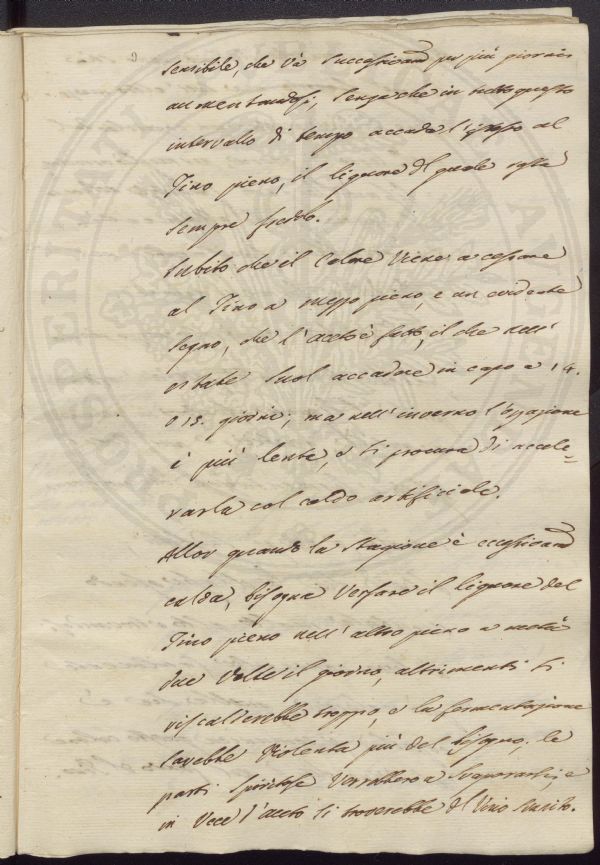 sensibile, che và successivam per più giorni
aumentandosi, senza che in tutto questo
intervallo di tempo accada l'istesso al
Tino pieno, il liquore del quale resta
sempre freddo.
Subito che il Calore viene a cessare
al Tino a mezzo pieno, e un evidente
segno, che l'aceto è fatto, il che nell'
estate suol accadere in capo a 14.
o 15. giorni; ma nell'inverno l'operazione
è più lenta, e si procura di accele=
rarla col caldo artificiale.
Allor quando la Stagione è eccessivam
calda, bisogna versare il liquore del
Tino pieno nell'altro pieno a metà
due volte il giorno, altrimenti si
riscalderebbe troppo, e la fermentazione
sarebbe violenta più del bisogno; le
parti spiritose verrebbero a svaporarsi, e
in vece d'aceto si troverebbe del Vino